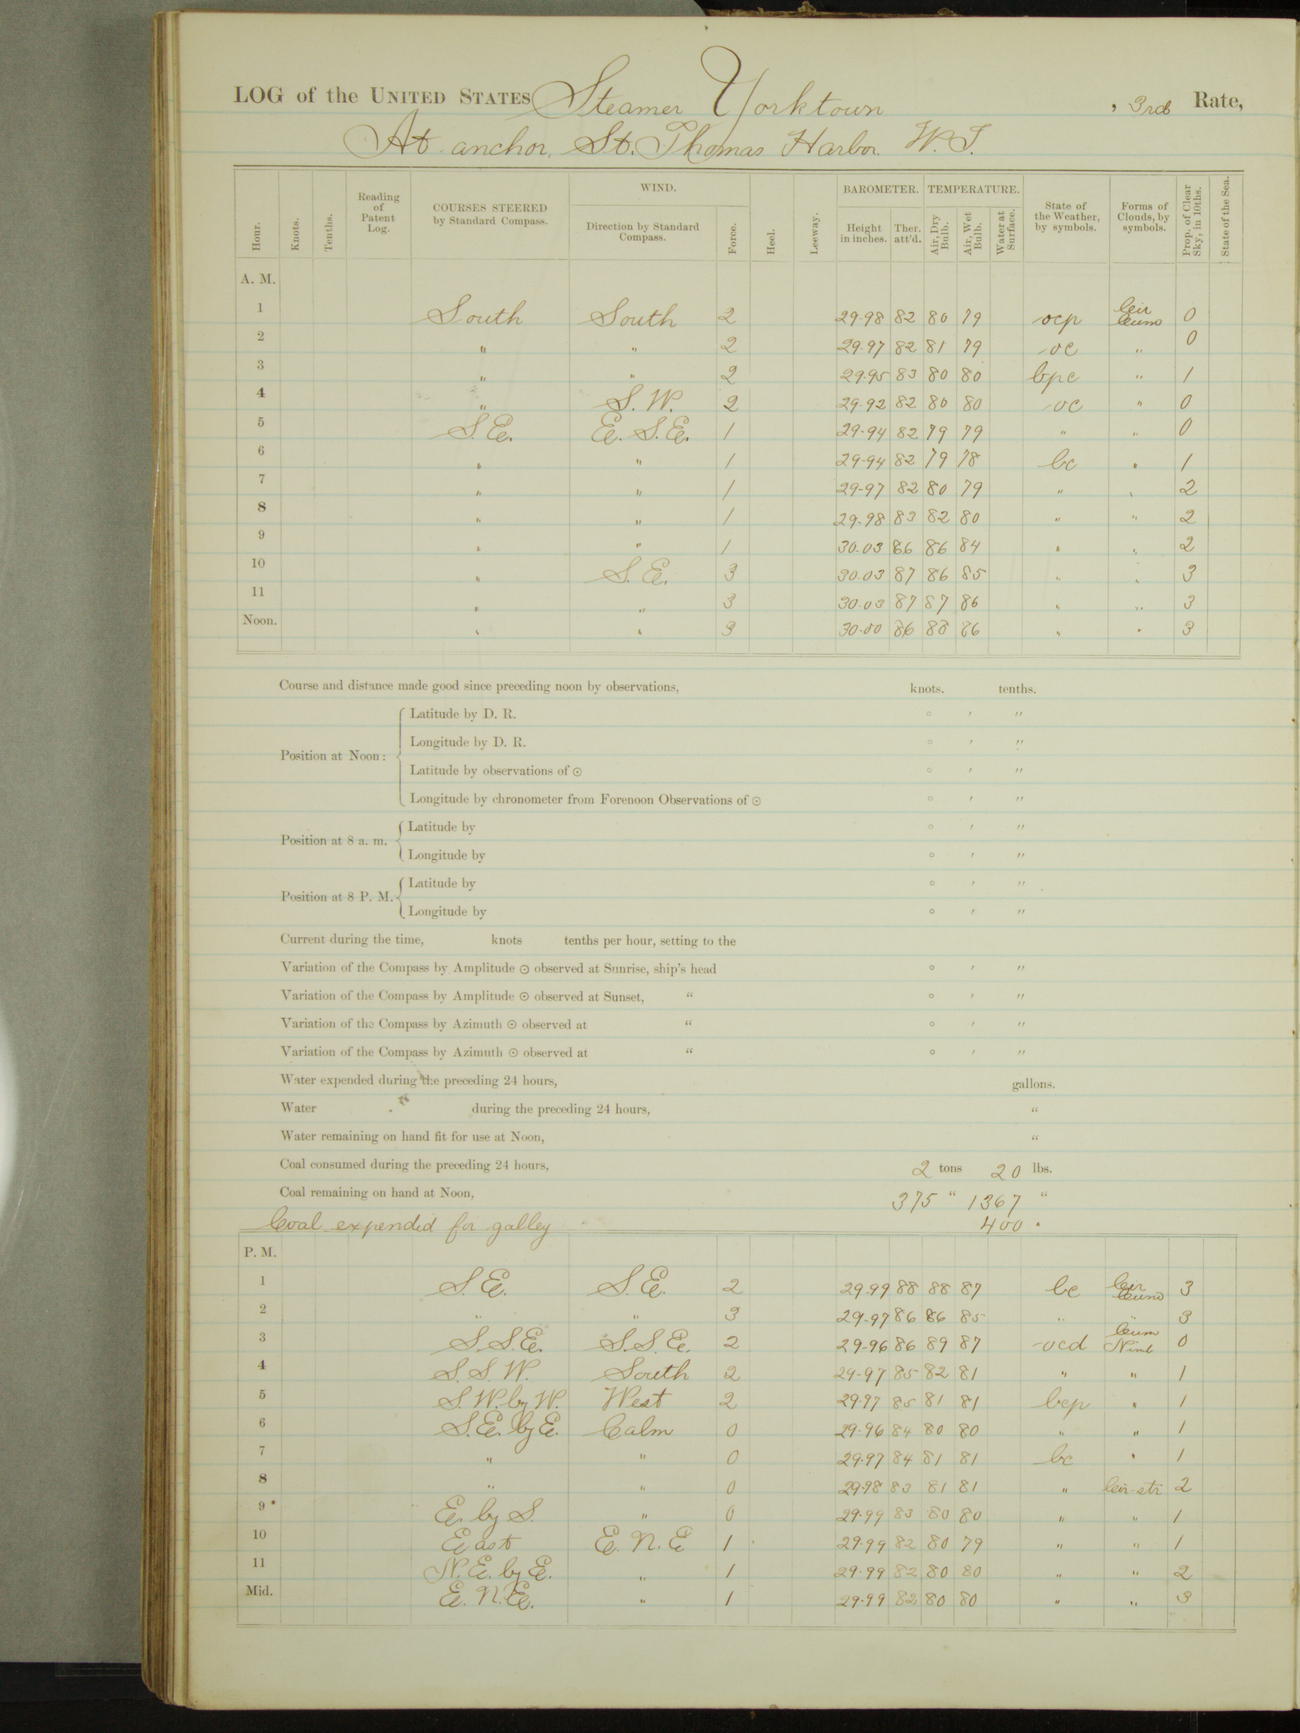 LOG of the UNITED STATES Steamer Yorktown , 3rd Rate,
At anchor, St. Thomas Harbor. W.I.
Hour. Knots. Tenths. Reading of Patent Log. COURSES STEERED by Standard Compass. WIND. Direction by Standard Compass. Force. Heel. Leeway. BAROMETER. Height in inches. Ther. att'd. TEMPERATURE. Air, Dry Bulb. Air, Wet Bulb. Water at Surface. State of the Weather, by symbols. Forms of Clouds, by symbols. Prop. of Clear Sky, in 10ths. State of the Sea.
A. M.
1 South South 2 29.98 82 80 79 ocp Cir Cumo 0
2 " " 2 29.97 82 81 79 oc " 0
3 " " 2 29.95 83 80 80 bpc " 1
4 " S. W. 2 29.92 82 80 80 oc " 0
5 S.E. E. S.E. 1 29.94 82 79 79 " " 0
6 " " 1 29.94 82 79 78 bc " 1
7 " " 1 29.97 82 80 79 " " 2
8 " " 1 29.98 83 82 80 " " 2
9 " " 1 30.03 86 86 84 " " 2
10 " S.E. 3 30.03 87 86 85 " " 3
11 " " 3 30.03 87 87 86 " " 3
Noon. " " 3 30.00 86 88 86 " " 3
Course and distance made good since preceding noon by observations, knots. tenths.
Position at Noon: Latitude by D. R. ° ′ ″
Longitude by D. R. ° ′ ″
Latitude by observations of ☉ ° ′ ″
Longitude by chronometer from Forenoon Observations of ☉ ° ′ ″
Position at 8 a. m. Latitude by ° ′ ″
Longitude by ° ′ ″
Position at 8 P. M. Latitude by ° ′ ″
Longitude by ° ′ ″
Current during the time, knots tenths per hour, setting to the
Variation of the Compass by Amplitude ☉ observed at Sunrise, ship's head ° ′ ″
Variation of the Compass by Amplitude ☉ observed at Sunset, " ° ′ ″
Variation of the Compass by Azimuth ☉ observed at " ° ′ ″
Variation of the Compass by Azimuth ☉ observed at " ° ′ ″
Water expended during the preceding 24 hours, gallons.
Water during the preceding 24 hours, "
Water remaining on hand fit for use at Noon, "
Coal consumed during the preceding 24 hours, 2 tons 20 lbs.
Coal remaining on hand at Noon, 375 " 1367 "
Coal expended for galley 400 "
P. M.
1 S.E. S.E. 2 29.99 88 88 87 bc Cir Cumo 3
2 " " 3 29.97 86 86 85 " " 3
3 S.S.E. S.S.E. 2 29.96 86 89 87 ocd Cum Nim 0
4 S. S. W. South 2 29.97 85 82 81 " " 1
5 S.W. by W. West 2 29.97 85 81 81 bcp " 1
6 S.E. by E. Calm 0 29.96 84 80 80 " " 1
7 " " 0 29.97 84 81 81 bc " 1
8 " " 0 29.98 83 81 81 " Cir-str 2
9 E. by S. " 0 29.99 83 80 80 " " 1
10 East E. N. E 1 29.99 82 80 79 " " 1
11 N.E. by E. " 1 29.99 82 80 80 " " 2
Mid. E. N.E. " 1 29.99 82 80 80 " " 3